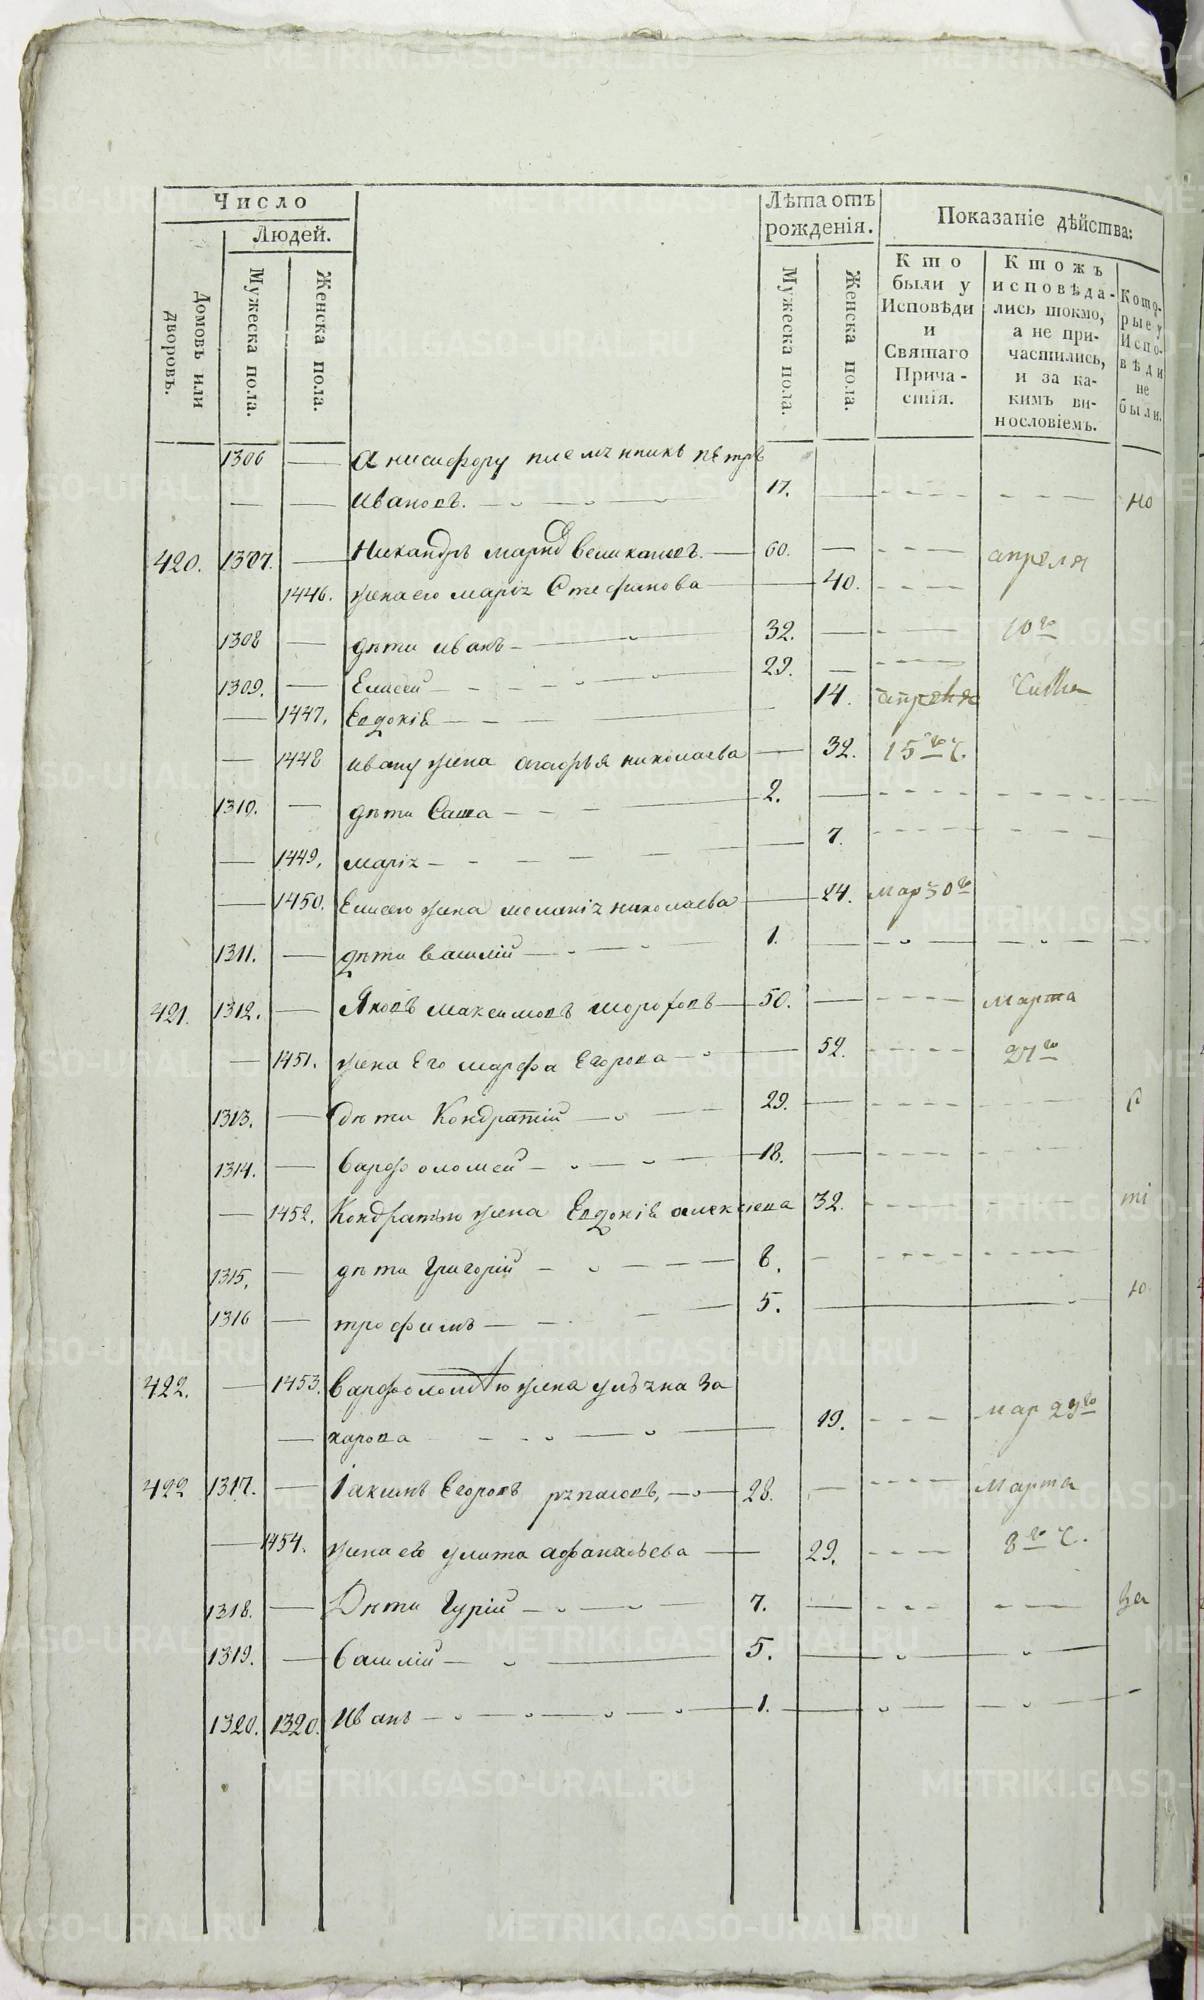 Число
Людей.
Домовъ или дворовъ.
Мужеска пола.
Женска пола.
Лѣта отъ рожденія.
Мужеска пола.
Женска пола.
Показаніе дѣйства:
Кто были у Исповѣди и Святаго Причастія.
Ктожъ исповѣдались токмо, а не причастились, и за какимъ винословіемъ.
Которые у Исповѣди не были.
1306 — Анисифору племянникъ пѣтръ
Ивановъ. 17. но
420. 1307. — Никандръ 60. — апреля
1446. жена его маріа Стефанова — 40.
1308 — дѣти иванъ — 32. — 10го
1309. — Елисей — 29. —
— 1447. Евдокія — 14. апреля
— 1448 ивану жена агафья николаева — 32. 15го ч.
1310. — дѣти Саша — 2. —
— 1449. маріа — 7.
— 1450. Елисею жена меланіа николаева — 24. мар 30го
1311. — дѣти василій — 1. —
421. 1312. — Яковъ максимовъ — 50. — марта
— 1451. жена Его марфа Егорова — 52. 27го
1313. — дѣти Кондратій — 29. —
1314. — варфоломей — 18. —
— 1452. Кондратью жена Евдокія алексіева 32. ті
1315. — дѣти Григорій — 8. —
1316 — трофимъ — 5. — ю
422. — 1453. варфоломѣю жена За
— харова — 19. мар 29го
422 1317. — Іакимъ Егоровъ — 28. — марта
— 1454. жена его улита афанасьева — 29. 8го ч.
1318. — Дѣти Гурій — 7. — за
1319. — василій — 5. —
1320. 1320. Иванъ — 1. —
METRIKI.GASO-URAL.RU